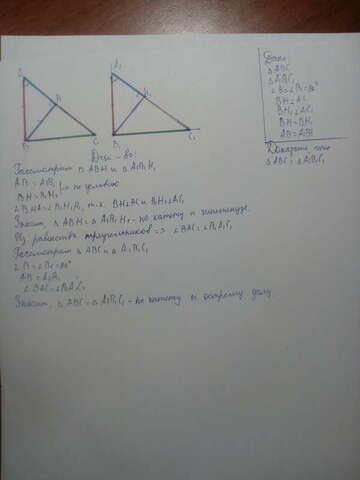 Дано:
△ABC
△A₁B₁C₁
∠B=∠B₁=90°
BH⊥AC
B₁H₁⊥A₁C₁
BH=B₁H₁
AB=A₁B₁
Доказать, что
△ABC=△A₁B₁C₁
A
H
B
C
A₁
H₁
B₁
C₁
Док-во:
Рассмотрим △ABH и △A₁B₁H₁
AB=A₁B₁
BH=B₁H₁ } - по условию
∠BHA=∠B₁H₁A₁, т.к. BH⊥AC и B₁H₁⊥A₁C₁
Значит, △ABH=△A₁B₁H₁ - по катету и гипотенузе.
Из равенства треугольников => ∠BAC=∠B₁A₁C₁
Рассмотрим △ABC и △A₁B₁C₁
∠B=∠B₁=90°
AB=A₁B₁
∠BAC=∠B₁A₁C₁
Значит, △ABC=△A₁B₁C₁ - по катету и острому углу